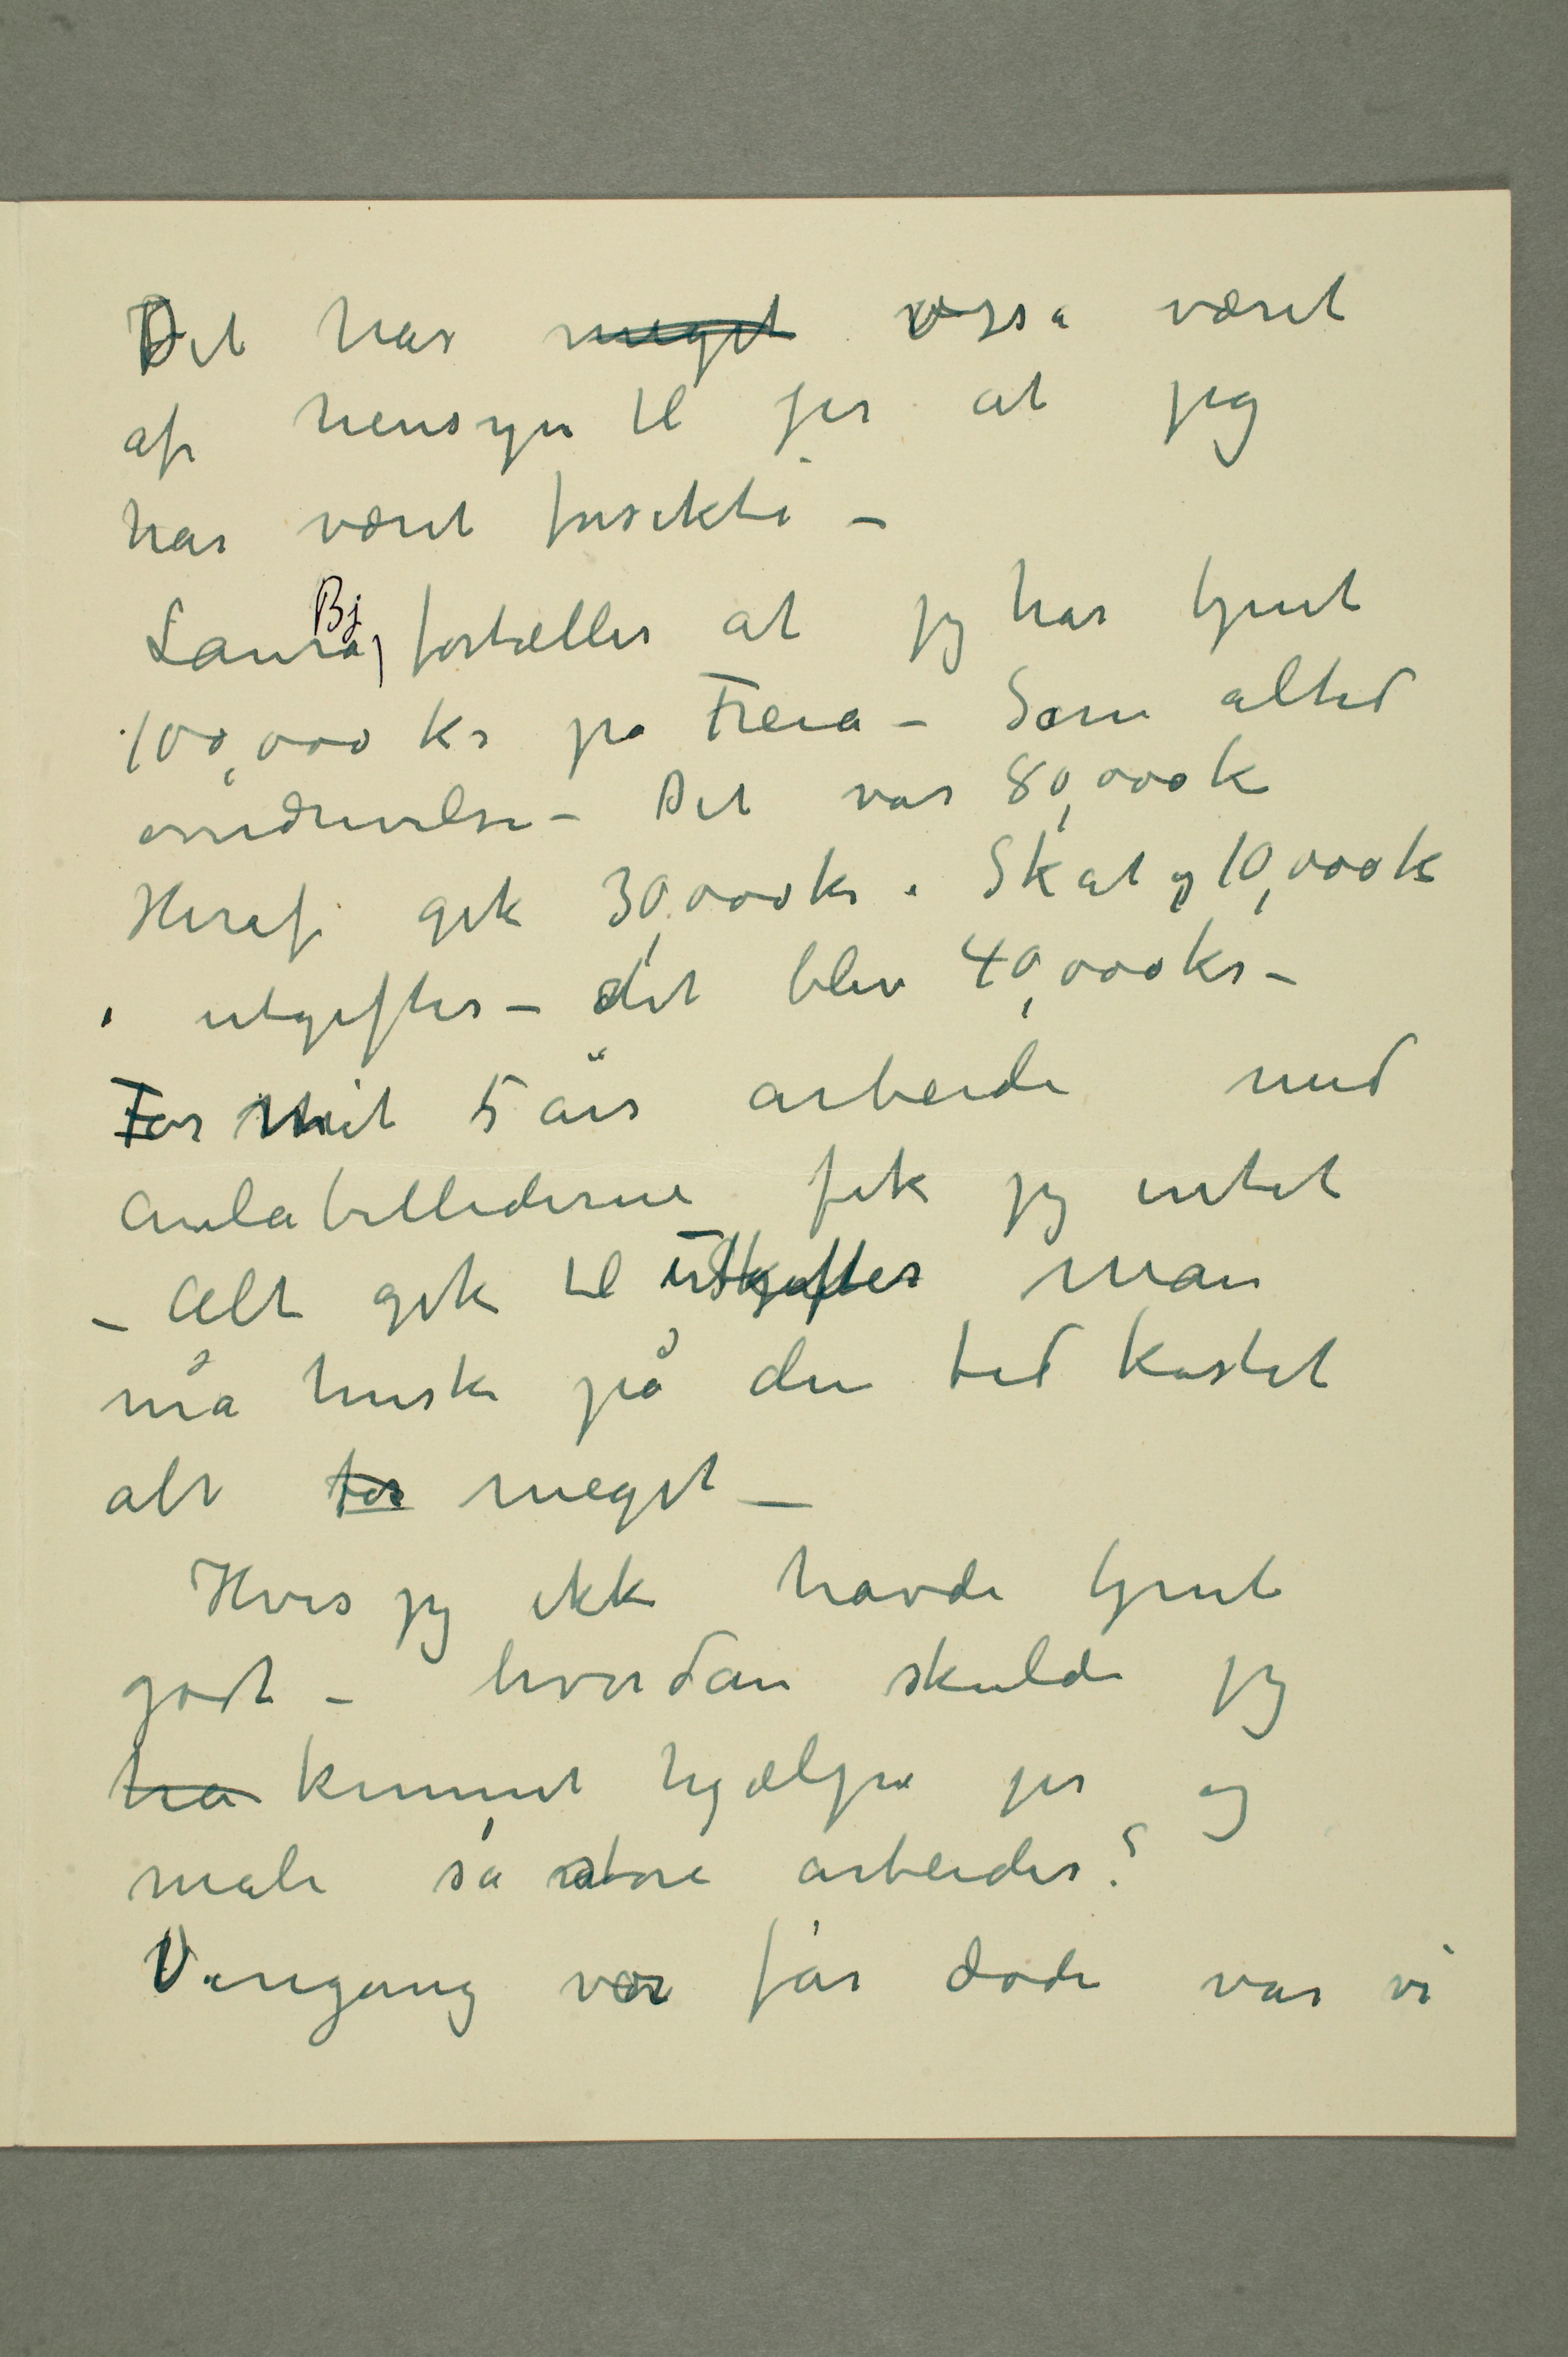 Det har meget ogsså været
af hensyn til jer at jeg
har været forsiktig –
Laura Bj fortæller at jeg har tjent
100,000 kr på Freia – Som altid
overdrivelse – Det var 80,000 k
Heraf gik 30,000 kr i Skat og 10,000 k
i utgifter – det blev 40,000 kr –
For mit 5 års arbeide med
Aulabillederne fik jeg intet
– Alt gik til utgifter man
må huske på den tid kostet
alt for meget –
Hvis jeg ikke havde tjent
godt – hvordan skulde jeg
ha kunnet hjælpe jer og
male så store arbeider?
Dengang vor far døde var vi